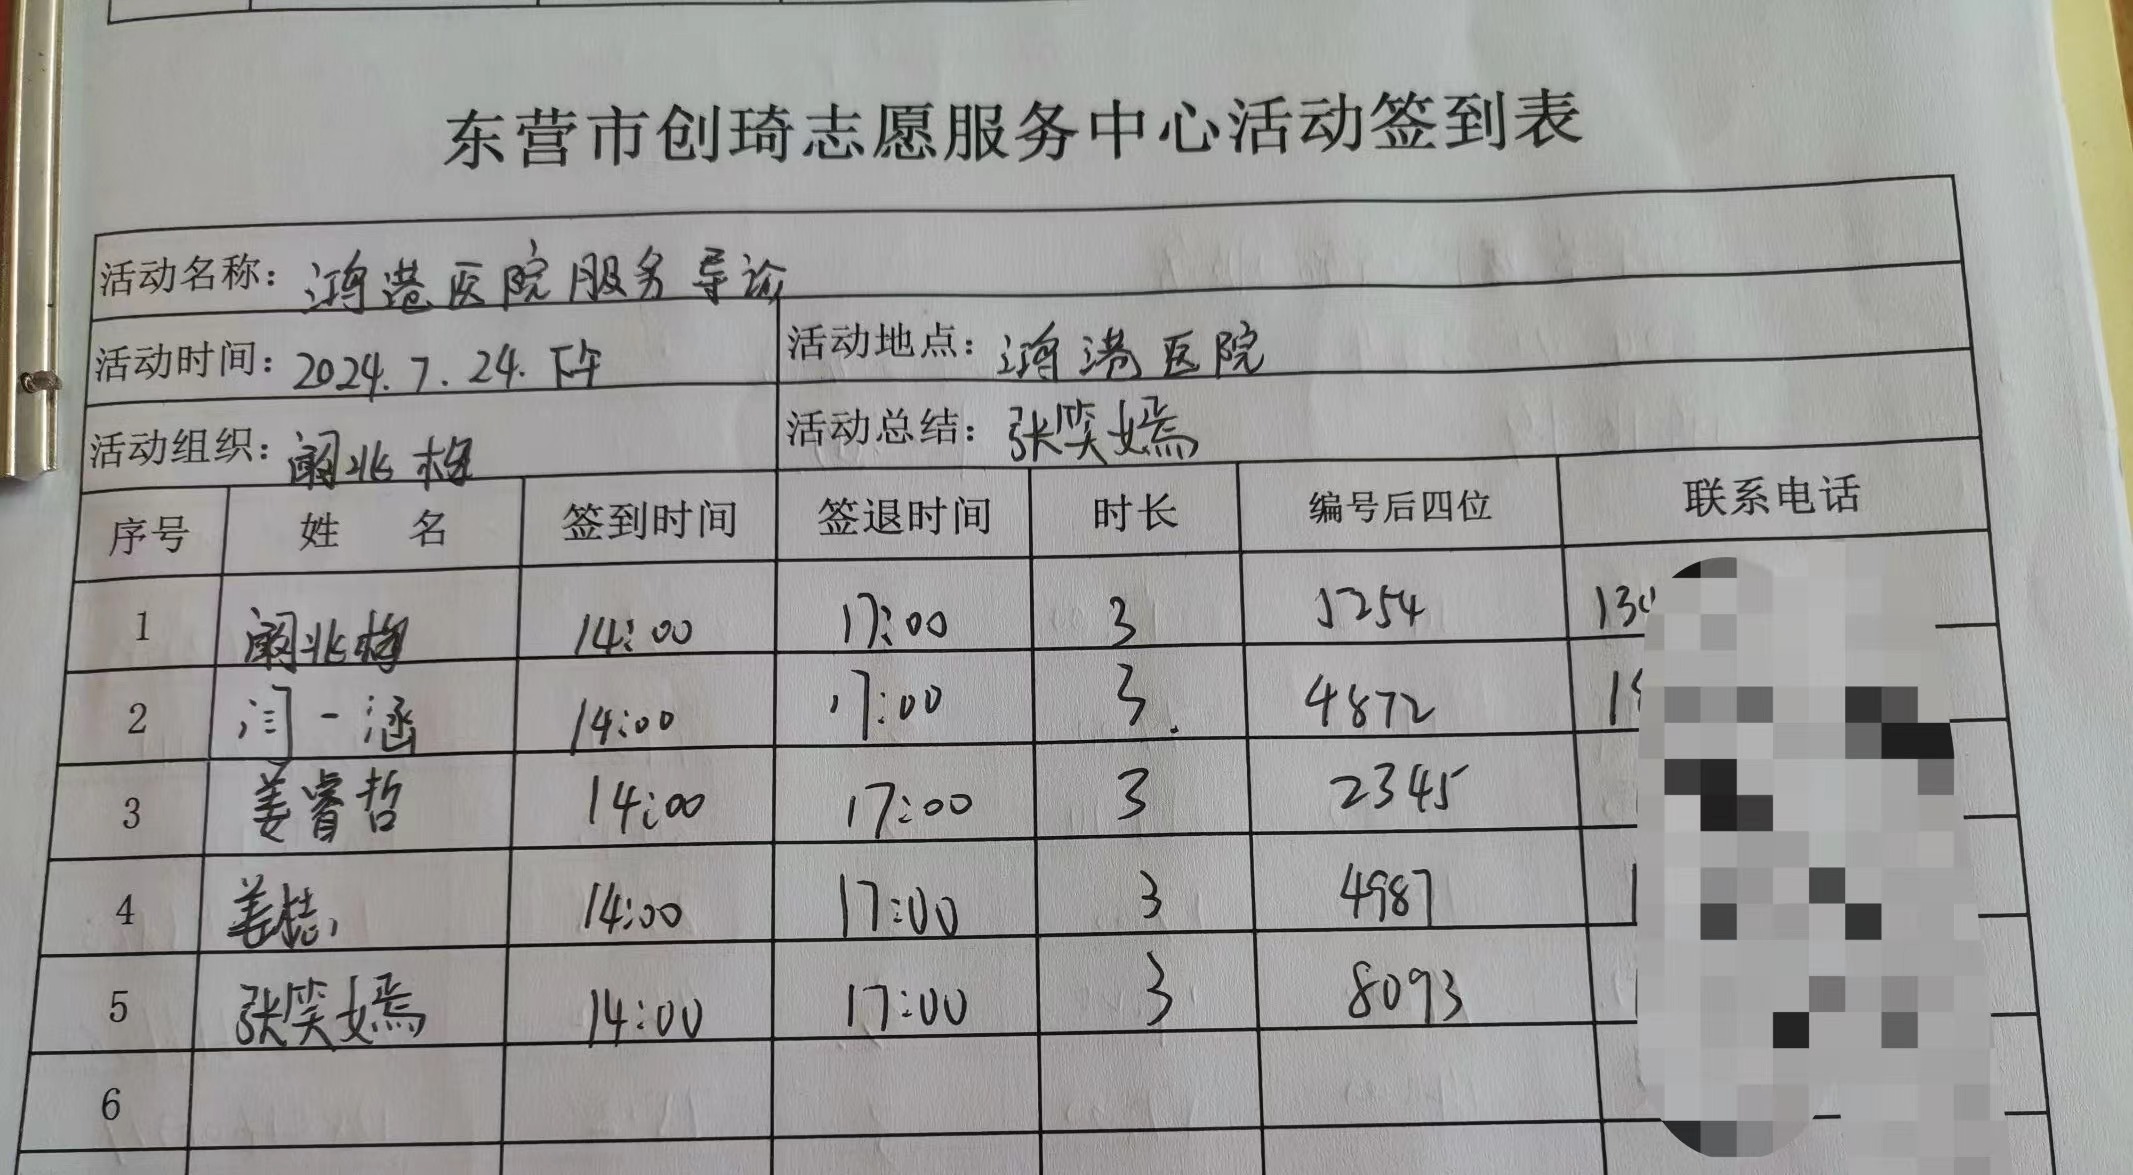 东营市创琦志愿服务中心活动签到表
活动名称：鸿港医院服务导诊
活动时间：2024.7.24.下午 活动地点：鸿港医院
活动组织：阚兆梅 活动总结：张笑嫣
序号 姓 名 签到时间 签退时间 时长 编号后四位 联系电话
1 阚兆梅 14:00 17:00 3 5254 13
2 闫一涵 14:00 17:00 3. 4872 1
3 姜睿哲 14:00 17:00 3 2345
4 姜 14:00 17:00 3 4987 1
5 张笑嫣 14:00 17:00 3 8093
6